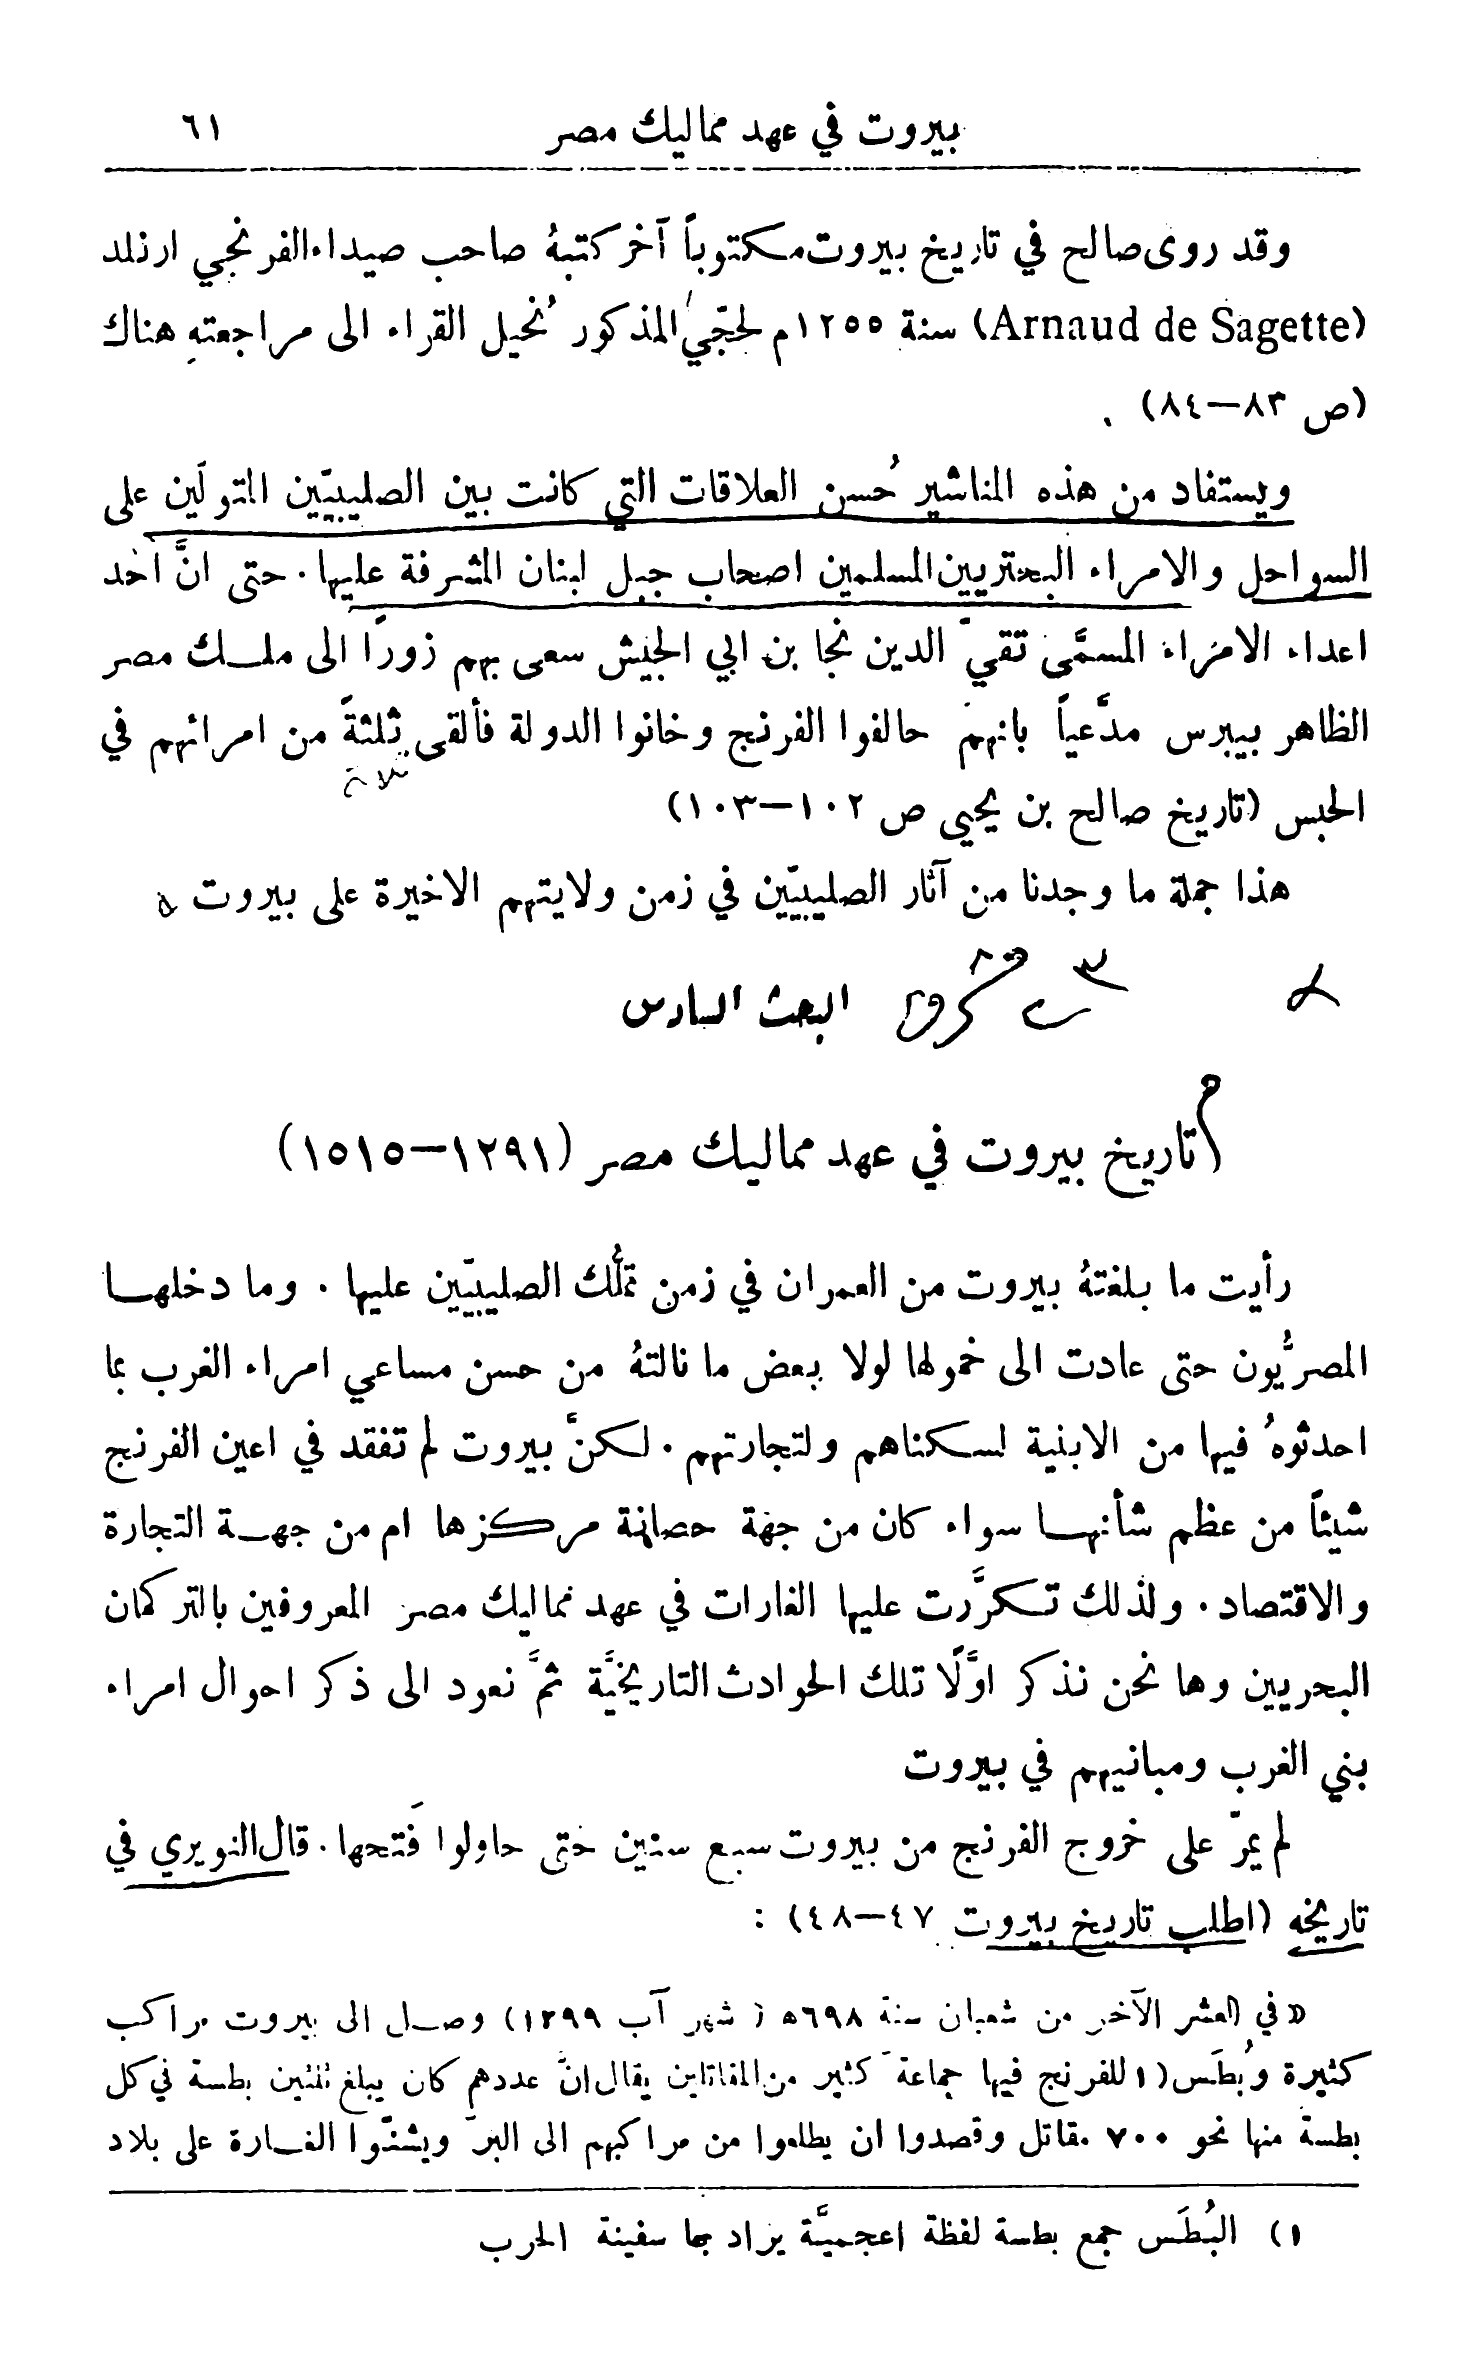 بيروت في عهد مماليك مصر ٦١
وقد روى صالح في تاريخ بيروت مكتوباً آخر كتبهُ صاحب صيداء الفرنجي ارنلد
(Arnaud de Sagette) سنة ١٢٥٥م لحجّي المذكور نُحيل القراء الى مراجعتهِ هناك
(ص ٨٣–٨٤) .
ويستفاد من هذه المناشير حُسن العلاقات التي كانت بين الصليبيّين المتولَين على
السواحل والامراء البحتريين المسلمين اصحاب جبل لبنان المشرفة عليها. حتى انَّ احد
اعداء الامراء المسمَّى تقيّ الدين نجا بن ابي الجيش سعى بهم زورًا الى ملك مصر
الظاهر بيبرس مدَّعياً بانهم حالفوا الفرنج وخانوا الدولة فألقى ثلثةً من امرائهم في
ثلاثة
الحبس (تاريخ صالح بن يحيى ص ١٠٢–١٠٣)
هذا جملة ما وجدنا من آثار الصليبيّين في زمن ولايتهم الاخيرة على بيروت
البحث السادس
تاريخ بيروت في عهد مماليك مصر (١٢٩١–١٥١٥)
رأيت ما بلغتهُ بيروت من العمران في زمن تملُّك الصليبيّين عليها . وما دخلها
المصريُّون حتى عادت الى خمولها لولا بعض ما نالتهُ من حسن مساعي امراء الغرب بما
احدثوهُ فيها من الابنية لسكناهم ولتجارتهم . لكنَّ بيروت لم تفقد في اعين الفرنج
شيئاً من عظم شأنها سواء كان من جهة حصانة مركزها ام من جهة التجارة
والاقتصاد. ولذلك تكرَّرت عليها الغارات في عهد مماليك مصر المعروفين بالتركمان
البحريين وها نحن نذكر اوَّلًا تلك الحوادث التاريخيَّة ثمَّ نعود الى ذكر احوال امراء
بني الغرب ومبانيهم في بيروت
لم يمرّ على خروج الفرنج من بيروت سبع سنين حتى حاولوا فَتحها. قال النويري في
تاريخه (اطلب تاريخ بيروت ٤٧–٤٨) :
« في العشر الآخر من شعبان سنة ٦٩٨ﻫ ( شهر آب ١٢٩٩) وصل الى بيروت مراكب
كثيرة وبُطَس(١ للفرنج فيها جماعة كثير من المقاتلين يقال انَّ عددهم كان يبلغ ثلثين بطسة في كل
بطسة منها نحو ٧٠٠ مقاتل وقصدوا ان يطلعوا من مراكبهم الى البرّ ويشنّوا الغارة على بلاد
١) البُطَس جمع بطسة لفظة اعجميَّة يراد بها سفينة الحرب